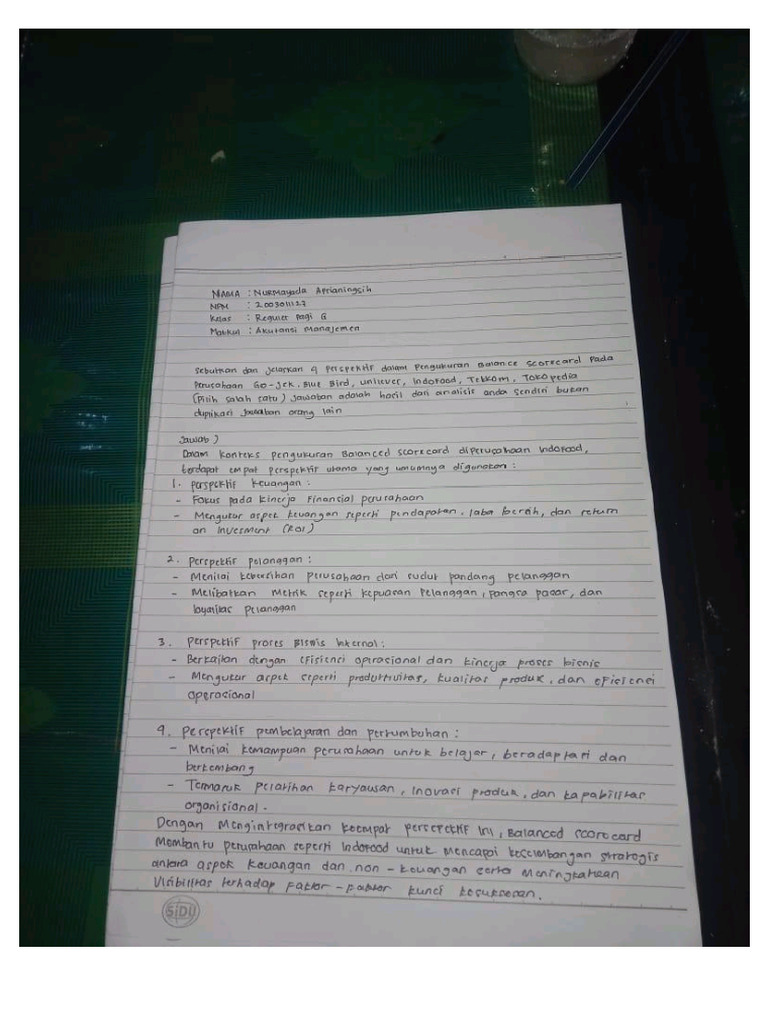 NAMA : Nurmayada Aprianingsih
NPM : 2003011127
Kelas : Reguler Pagi G
Matkul : Akutansi Manajemen
Sebutkan dan jelaskan 4 perspektif dalam pengukuran Balance Scorecard pada
perusahaan Go-jek, Blue Bird, unilever, Indofood, Telkom, Tokopedia
(Pilih salah satu) jawaban adalah hasil dari analisis anda sendiri bukan
duplikasi jawaban orang lain
Jawab )
Dalam konteks pengukuran Balanced scorecard diperusahaan Indofood,
terdapat empat perspektif utama yang umumnya digunakan :
1. perspektif keuangan :
- Fokus pada kinerja financial perusahaan
- Mengukur aspek keuangan seperti pendapatan, laba bersih, dan return
on Invesment (ROI)
2. perspektif pelanggan :
- Menilai keberhasilan perusahaan dari sudut pandang pelanggan
- Melibatkan Metrik seperti kepuasan pelanggan, pangsa pasar, dan
loyalitas pelanggan
3. perspektif proses Bisnis internal :
- Berkaitan dengan efisiensi operasional dan kinerja proses bisnis
- Mengukur aspek seperti produktivitas, kualitas produk, dan efisiensi
operasional
4. perspektif pembelajaran dan pertumbuhan :
- Menilai kemampuan perusahaan untuk belajar, beradaptasi dan
berkembang
- Termasuk pelatihan karyawan, inovasi produk, dan kapabilitas
organisional.
Dengan Mengintegrasikan keempat perspektif ini, Balanced scorecard
Membantu perusahaan seperti Indofood untuk mencapai keseimbangan strategis
antara aspek keuangan dan non-keuangan serta meningkatkan
Visibilitas terhadap faktor-faktor kunci kesuksesan.
SIDU